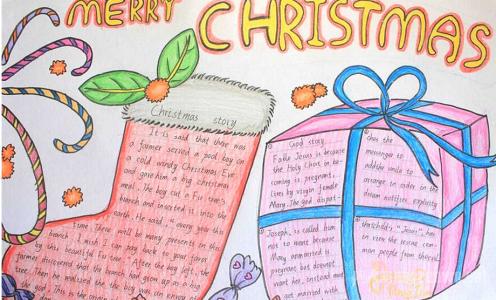 MERRY CHRISTMAS
Christmas story
It is said that there was
a farmer served a pool boy on
a cold windy Christmas Eve
and gave him a big christmas
meal. The boy cut a fir tree's
branch and inserted it into the
earth. He said " every you this
time, there will be many presents in this
branch. I wish I can pay back to your favor
by this beautiful fir tree." After the boy left, the
farmer discovered that the branch had grown up as a big
tree. Then he realized the the boy was an envoy of
the god. This is the
God story
Falle Jesus is because
the Holy Christ in be-
coming is pregnant,
lies by virgin female
Mary. The god dispat-
ches the
messenger to
addthe smile to
arrange in order in the
dream notifies explicitly
Joseph, is called him
not to want because
Mary unmarried is
pregnant but doesn't
want her, instead must
get married with
thischild's "Jesus", him
in view the rescue com-
man people from there